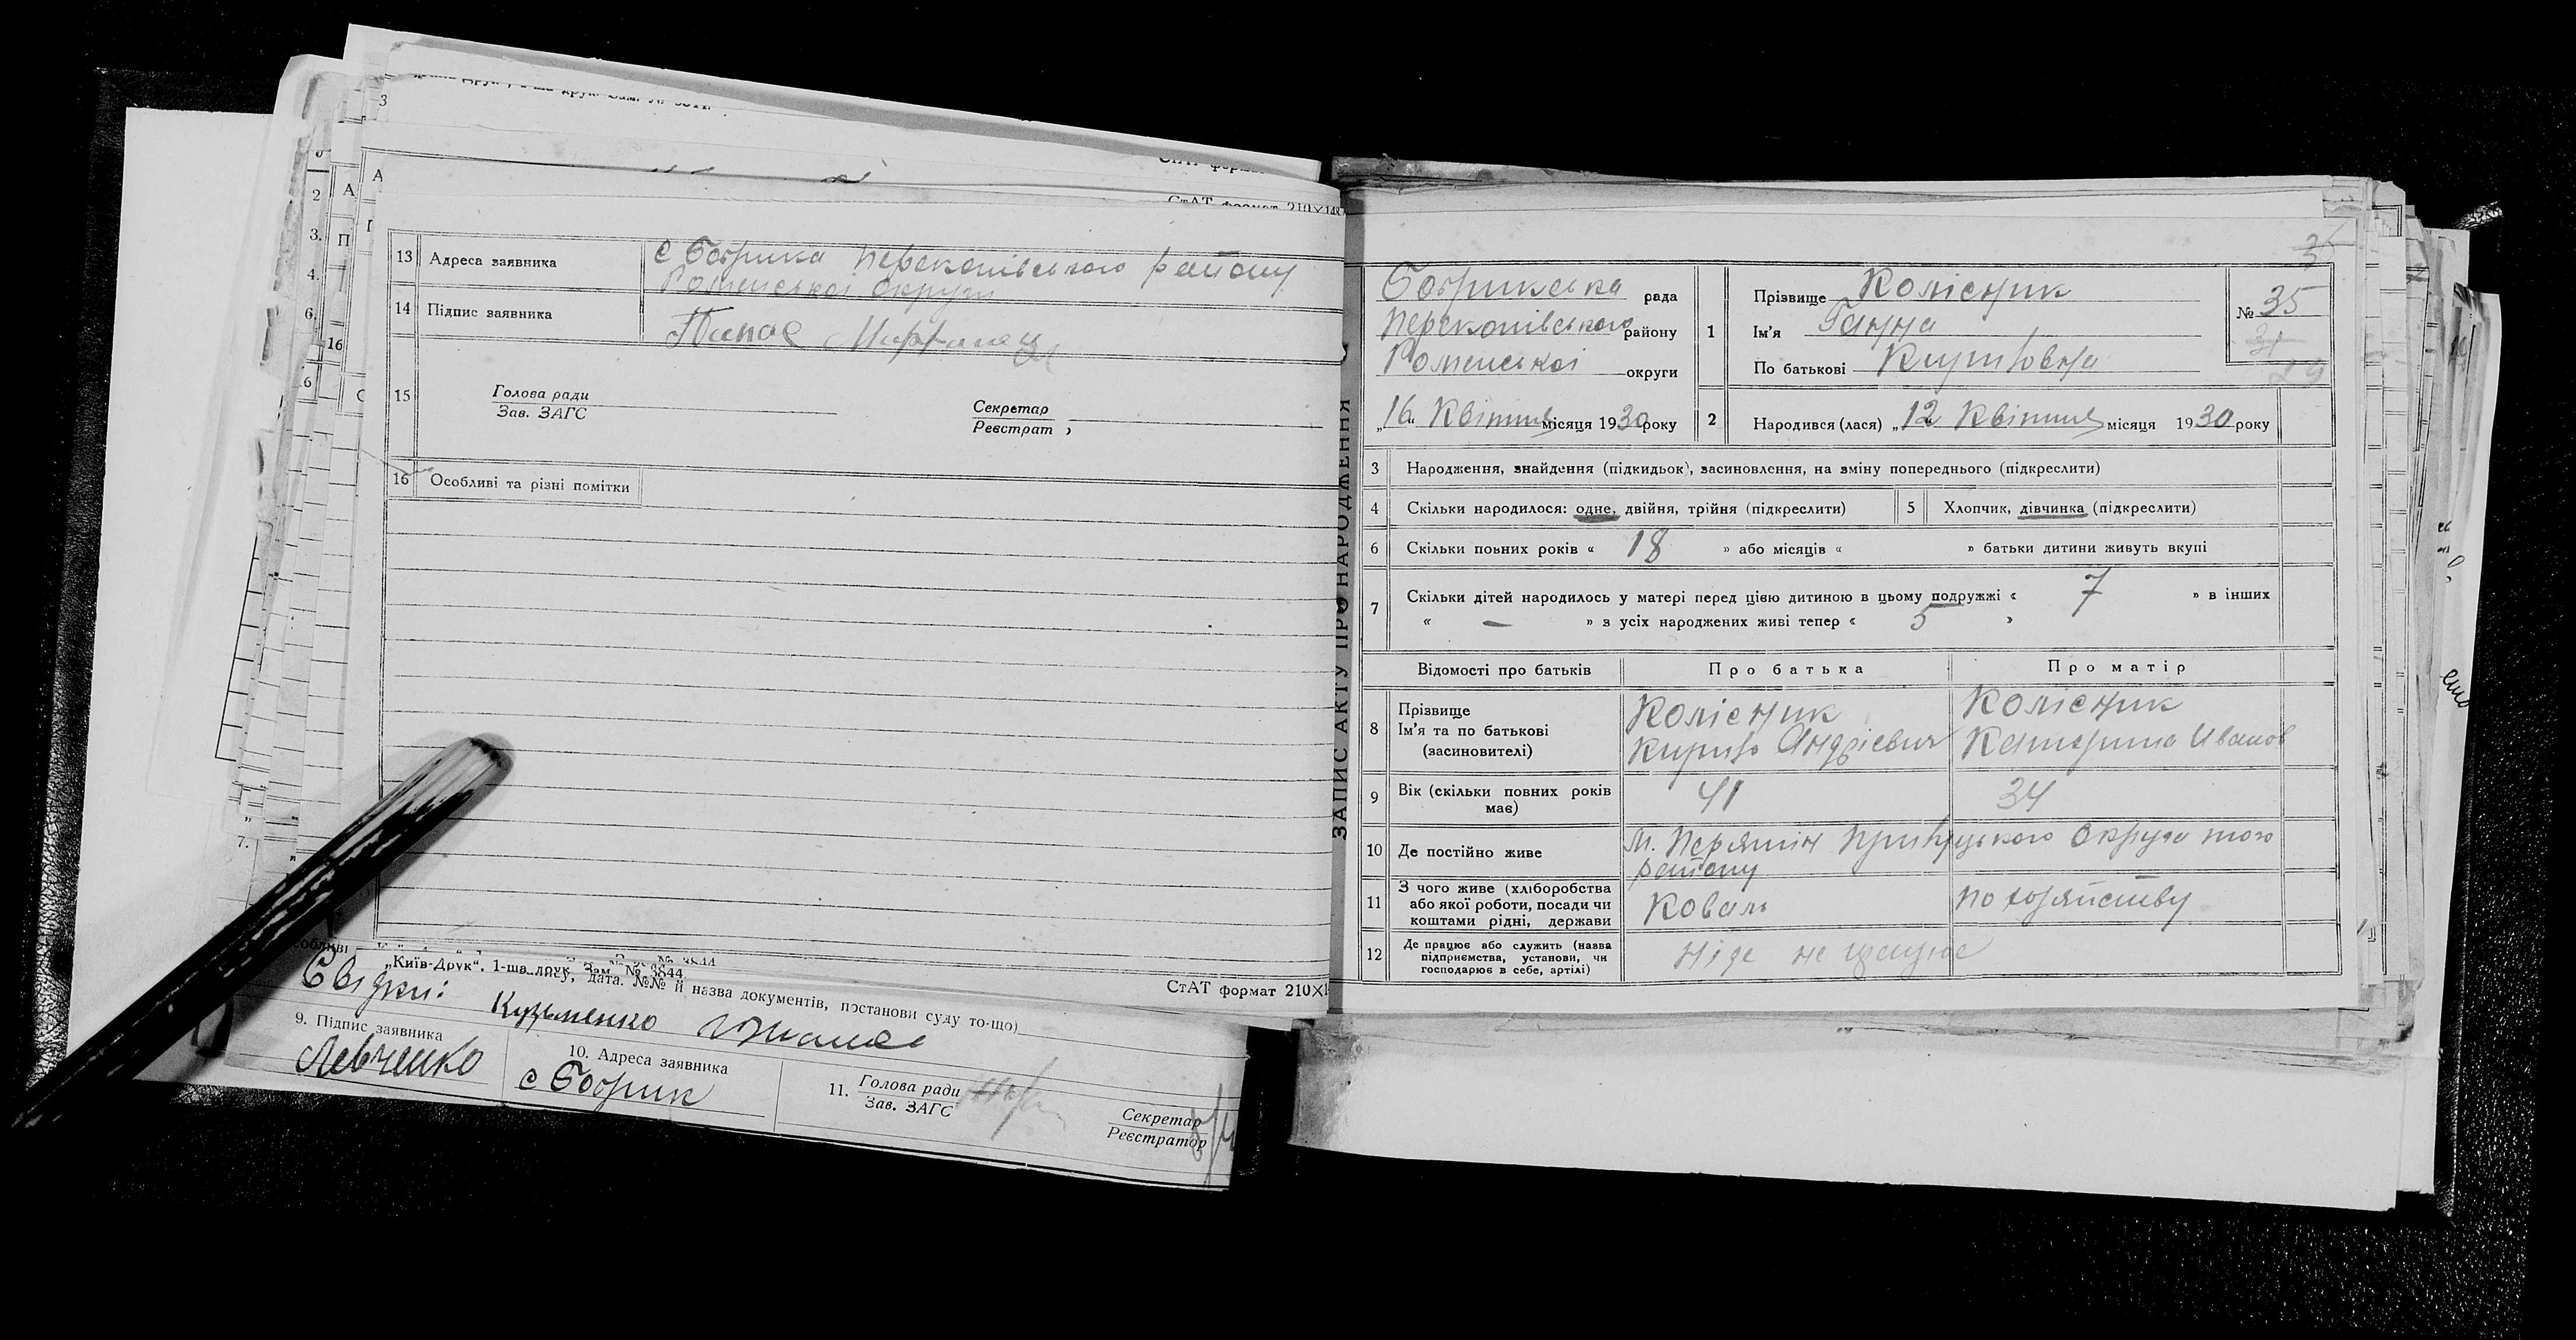 СтАТ формат 210×148
13 Адреса заявника с Бобрика Перекопівського району
Роменської округи
14 Підпис заявника Панас
15 Голова ради
Зав. ЗАГС
Секретар
Реєстрат
16 Особливі та різні помітки
„Київ-Друк“. 1-ша друк. Зам. № 3844.
СтАТ формат 210×1
дата. №№ й назва документів, постанови суду то-що)
Свідки: Кузьменко
9. Підпис заявника
Левченко
10. Адреса заявника
с Бобрик
11. Голова ради
Зав. ЗАГС
Секретар
Реєстратор
ЗАПИС АКТУ ПРО НАРОДЖЕННЯ
35
Бобрикська рада
Перекопівського району
Роменської округи
„16“ Квітня місяця 1930 року
1 Прізвище Колісник
Ім'я Ганна
По батькові Кириловна
№ 35
31
29
2 Народився (лася) „12 Квітня місяця 1930 року
3 Народження, знайдення (підкидьок), засиновлення, на зміну попереднього (підкреслити)
4 Скільки народилося: одне, двійня, трійня (підкреслити) 5 Хлопчик, дівчинка (підкреслити)
6 Скільки повних років « 18 » або місяців « » батьки дитини живуть вкупі
7 Скільки дітей народилось у матері перед цією дитиною в цьому подружжі « 7 » в інших
« — » з усіх народжених живі тепер « 5 »
Відомості про батьків Про батька Про матір
8 Прізвище
Ім'я та по батькові
(засиновителі)
Колісник
Кирило Андрієвич
Колісник
Катерина Иванов
9 Вік (скільки повних років
має) 41 34
10 Де постійно живе м. Пирятін Прилуцького Округа того
району
11 З чого живе (хліборобства
або якої роботи, посади чи
коштами рідні, держави
Коваль
по хозяйству
12 Де працює або служить (назва
підприємства, установи, чи
господарює в себе, артілі)
Ніде не працює